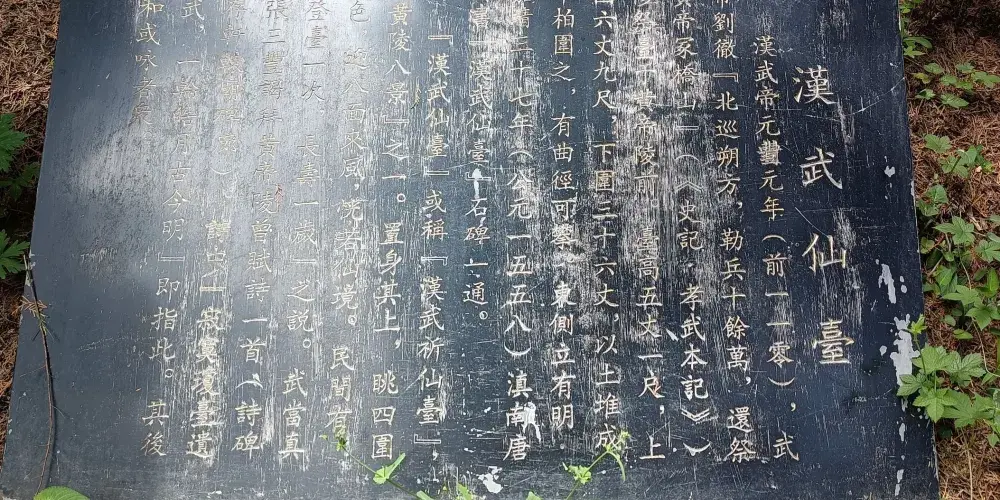 漢武仙臺
漢武帝元豐元年（前一一零），武
帝劉徹『北巡朔方，勒兵十餘萬，還祭
黃帝冢橋山』（《史記·孝武本記》）
祭臺于黃帝陵前。臺高五丈一尺，上
六丈九尺，下圍三十六丈，以土堆成
柏圍之，有曲徑可攀，東側立有明
靖三十七年（公元一五五八）滇南唐
書『漢武仙臺』石碑一通。
『漢武仙臺』或稱『漢武祈仙臺』，
黃陵八景』之一。置身其上，眺四圍
色，八面來風，恍若仙境。民間有
登臺一次，長壽一歲』之說。武當真
張三豐詩一首（詩碑
詩中『寂寞瓊臺遺
武，一輪古今明』即指此。其後
和或咏者